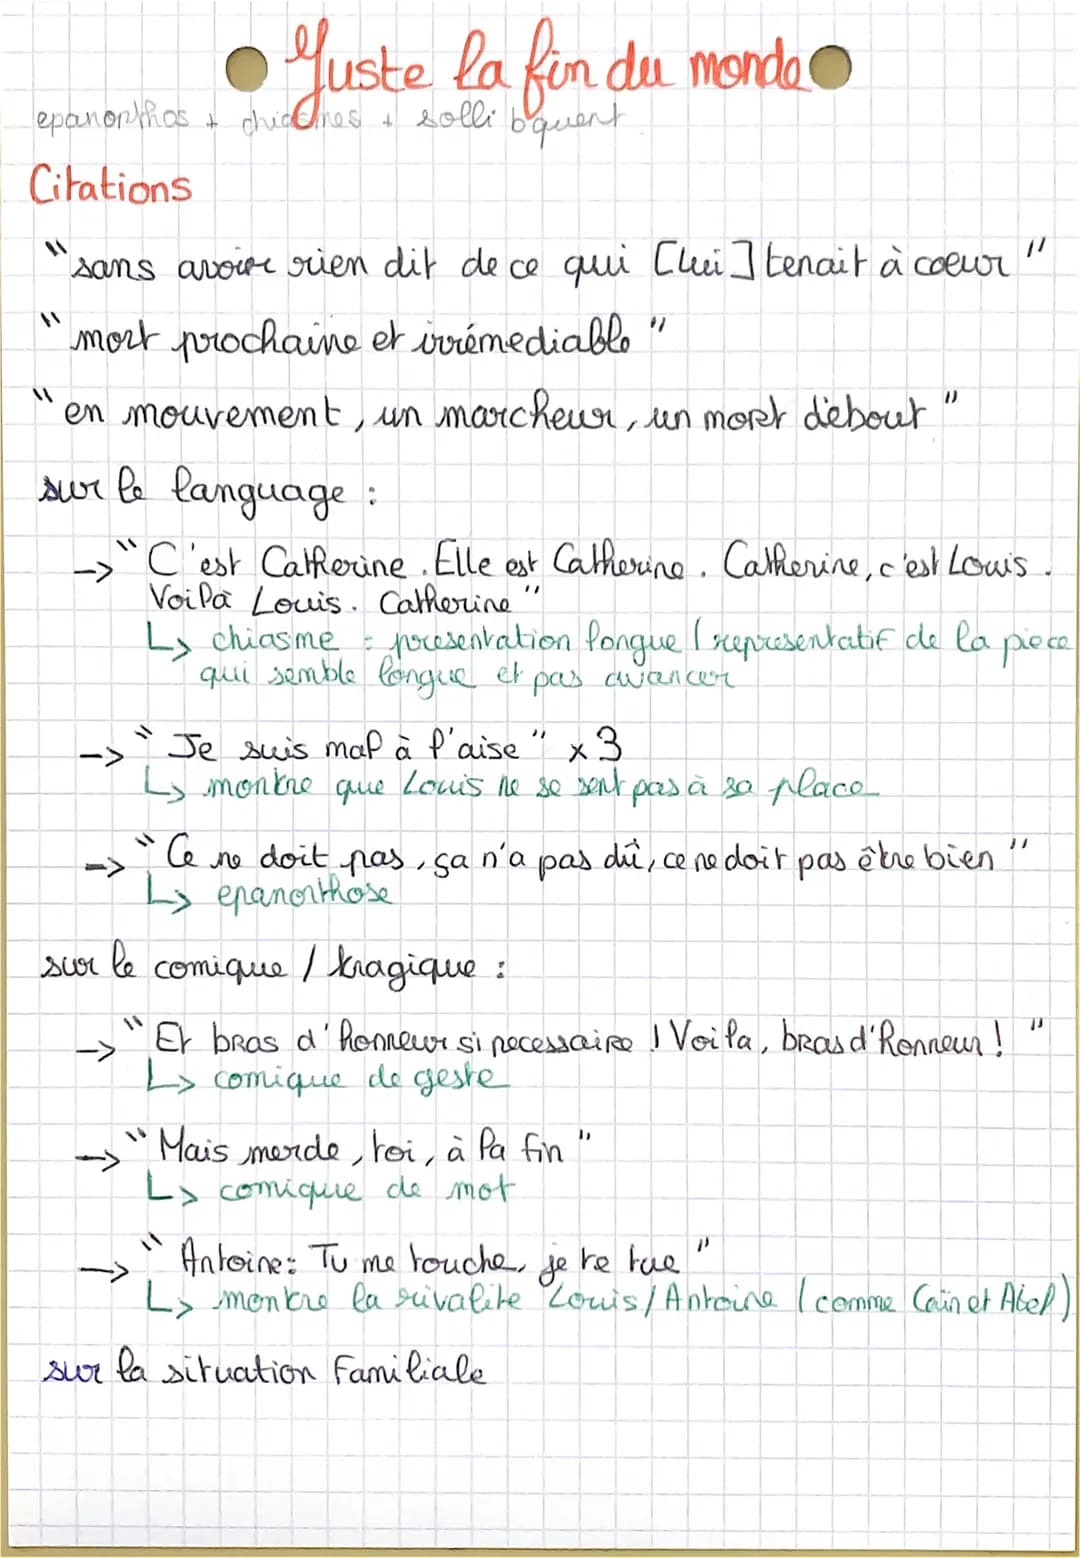 Juste la fin du monde
epanorthos + chiasmes + solli bquent
Citations
"sans avoir rien dit de ce qui [lui] tenait à coeur"
"mort prochaine et irrémediable"
"en mouvement, un marcheur, un mort debout"
sur le language :
-> "C'est Catherine. Elle est Catherine. Catherine, c'est Louis.
Voilà Louis. Catherine"
↳ chiasme : presentation longue (representatif de la piece
qui semble longue et pas avancer
-> "Je suis mal à l'aise" x3
↳ montre que Louis ne se sent pas à sa place
-> "Ce ne doit pas, ça n'a pas dû, ce ne doit pas être bien"
↳ epanorthose
sur le comique / tragique :
-> "Et bras d'honneur si necessaire ! Voila, bras d'honneur !"
↳ comique de geste
-> "Mais merde, toi, à la fin"
↳ comique de mot
-> "Antoine: Tu me touche, je te tue"
↳ montre la rivalite Louis/Antoine (comme Caïn et Abel)
sur la situation Familiale